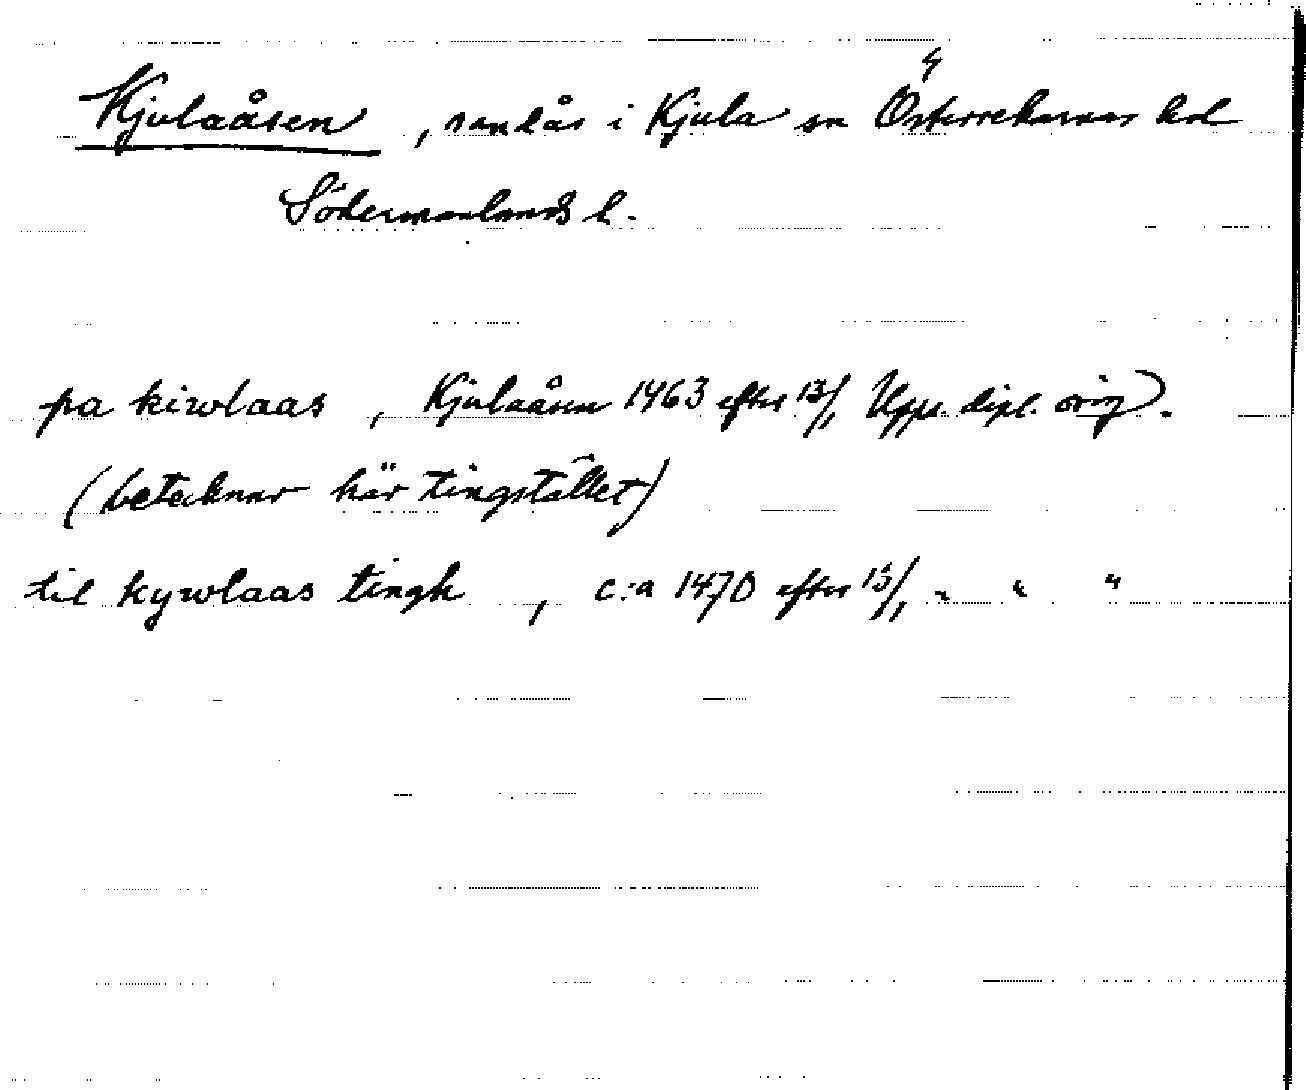 Kjulaåsen, sandås i Kjula sn Österrekarnes hd
Södermanlands l.
pa kiwlaas, Kjulaåsen 1463 efter 13/1 Upps. dipl. orig.
(betecknar här tingstället)
til kywlaas tingh, c:a 1470 efter 13/1 " " "